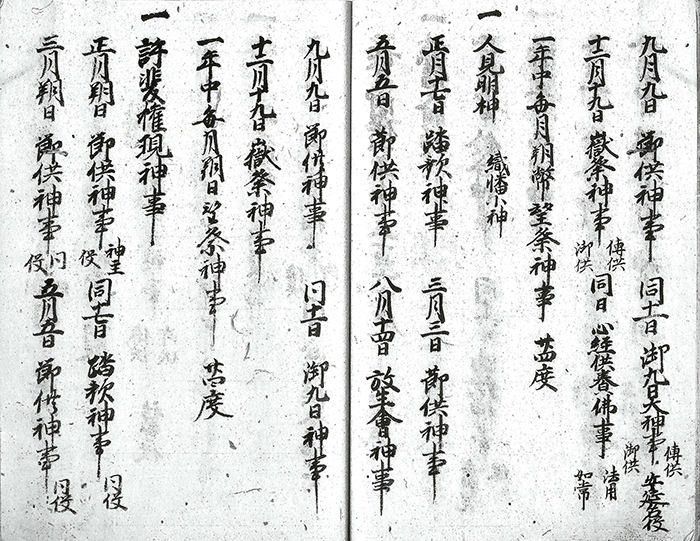 九月九日 節供神事 同十一日 御九日大神事 傳供 御供
十二月十九日 嶽祭神事 傳供 御供 同日 心経供養佛事 法用 如常
一年中毎月朔幣望祭神事 廿四度
一 人見明神 織幡小神
正月十七日 踏歌神事 三月三日 節供神事
五月五日 節供神事 八月十四日 放生會神事
九月九日 節供神事 同十一日 御九日神事
十二月十九日 嶽祭神事
一年中毎月朔日望祭神事 廿四度
一 許斐権現神事
正月朔日 節供神事 神主役 同十七日 踏歌神事 同役
三月朔日 節供神事 同役 五月五日 節供神事 同役